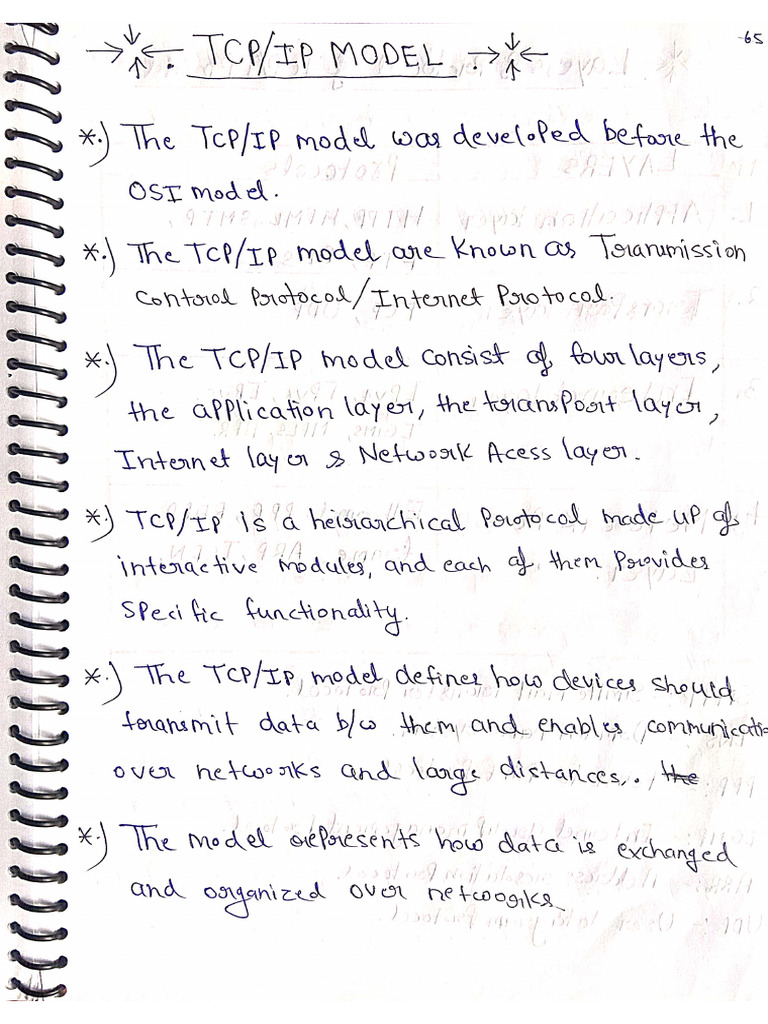 TCP/IP MODEL
65
*.) The TCP/IP model was developed before the
OSI model.
*.) The TCP/IP model are known as Tranmission
Control Protocol/Internet Protocol.
*.) The TCP/IP model consist of four layers,
the application layer, the transport layer,
Internet layer & Network Acess layer.
*.) TCP/IP is a heirarchical Protocol made up of
interactive modules, and each of them Provides
specific functionality.
*.) The TCP/IP model defines how devices should
transmit data b/w them and enables communicati
over networks and large distances. the
*.) The model represents how data is exchanged
and organized over networks.